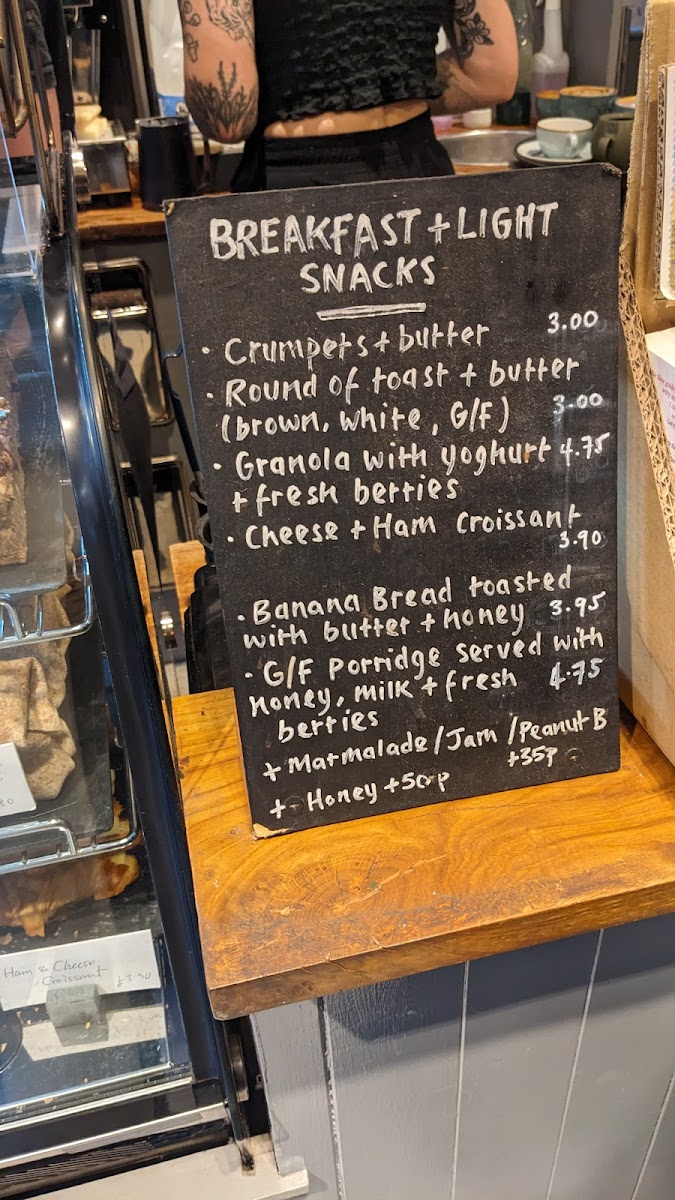 BREAKFAST + LIGHT
SNACKS
· Crumpets + butter 3.00
· Round of toast + butter
(brown, white, G/F) 3.00
· Granola with yoghurt 4.75
+ fresh berries
· Cheese + Ham Croissant
3.90
· Banana Bread toasted
with butter + honey 3.95
· G/F Porridge served with
honey, milk + fresh 4.75
berries
+ Marmalade/Jam/Peanut B
+35p
+ Honey +50p
Ham & Cheese
Croissant